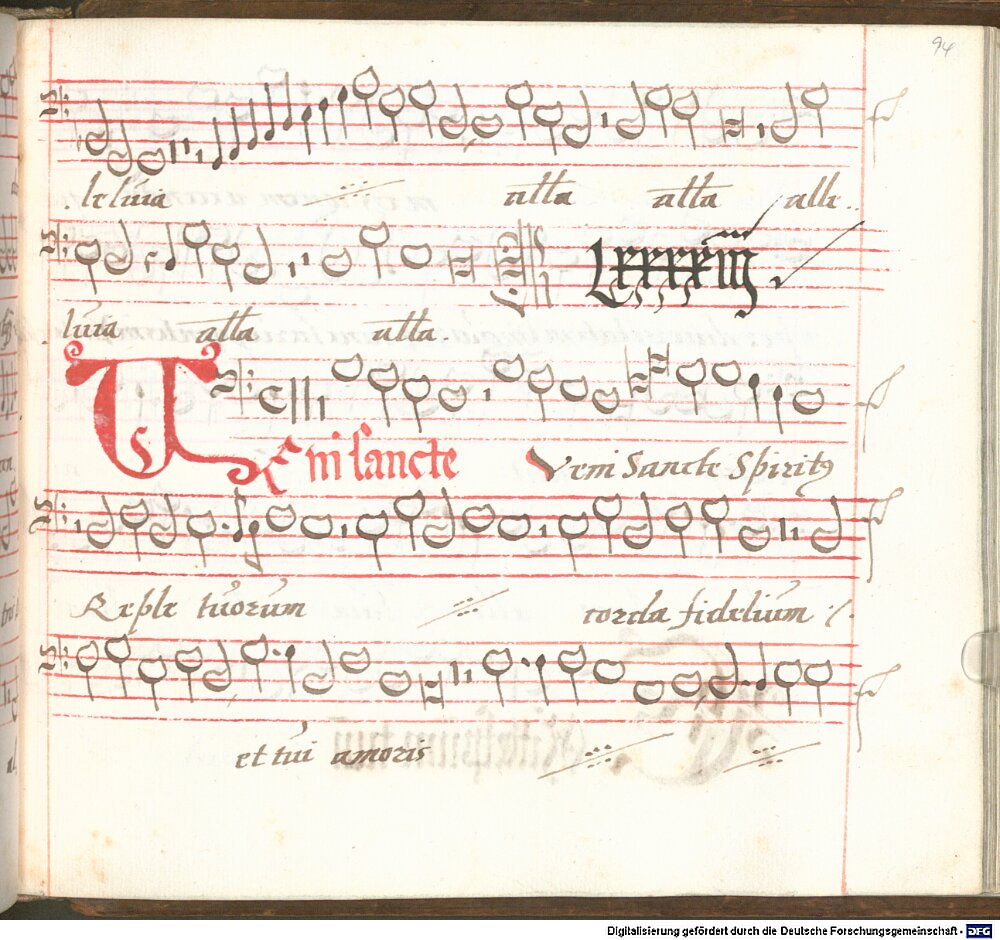 94
leluia alla alla alle
LXXXXiiij
luia alla alla
VEni sancte Veni Sancte Spiritꝰ
Reple tuorum corda fidelium
et tui amoris
Digitalisierung gefördert durch die Deutsche Forschungsgemeinschaft - DFG